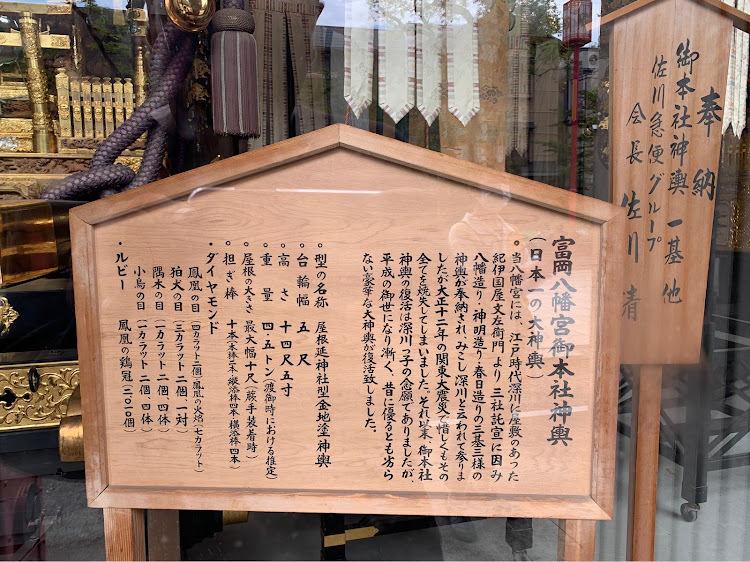 奉納
御本社神輿 一基 他
佐川急便グループ
会長 佐川 清
富岡八幡宮御本社神輿
(日本一の大神輿)
。当八幡宮には、江戸時代深川に屋敷のあった
紀伊国屋文左衛門より三社託宣に因み
八幡造り・神明造り・春日造りの三基三様の
神輿が奉納され、みこし深川と云われて参りま
したが大正十二年の関東大震災で惜しくもその
全てを焼失してしまいました。それ以来、御本社
神輿の復活は深川っ子の念願でありましたが、
平成の御世になり漸く、昔に優るとも劣ら
ない豪華な大神輿が復活致しました。
。型の名称 屋根延神社型金地塗神輿
。台輪幅 五尺
。高さ 十四尺五寸
。重量 四・五トン(渡御時における推定)
。屋根の大きさ 最大幅十尺(蕨手装着時)
。担ぎ棒 十本(本棒二本、縦添棒四本、横添棒四本)
・ダイヤモンド
鳳凰の目(四カラット二個)、鳳凰の火焔(七カラット)
狛犬の目(三カラット二個 一対)
隅木の目(一カラット二個、四体)
小鳥の目(一カラット二個、四体)
・ルビー 鳳凰の鶏冠(二〇一〇個)